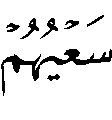 سَعۡيُهُمۡ